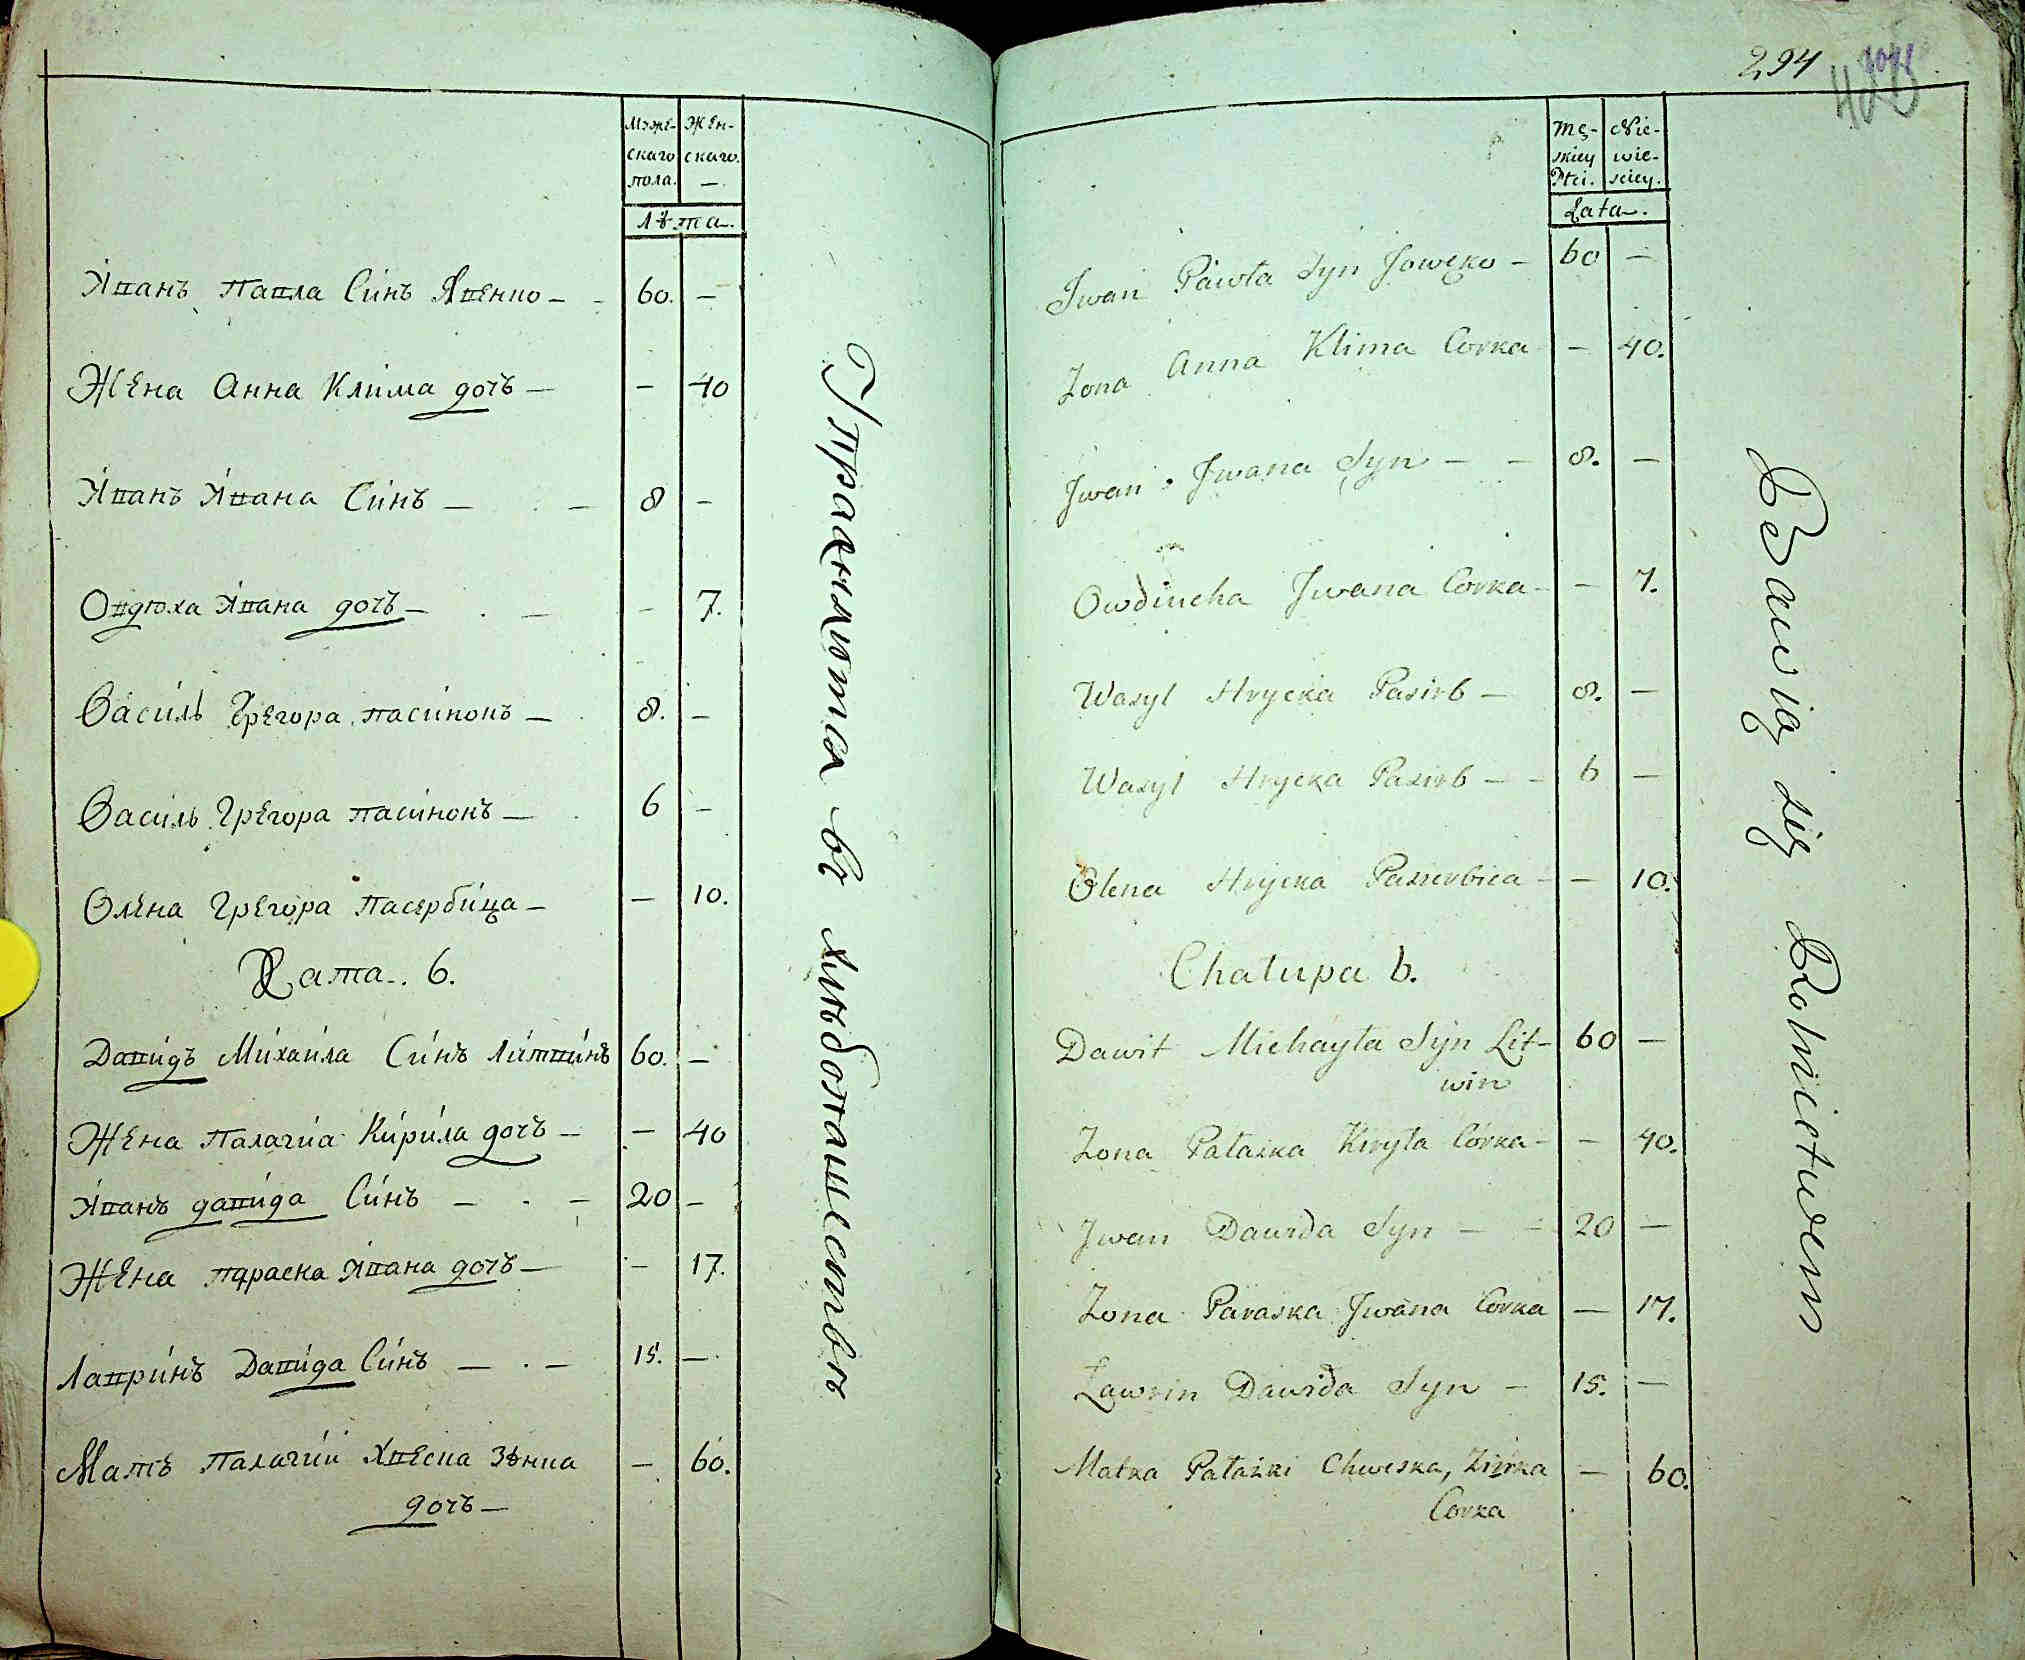 Мужe- Жен-
скаго скаго.
пола. —.
Лѣта.
Иванъ Павла Синъ Явенко — - 60. —
Жена Анна Клима дочь — — 40
Иванъ Ивана Синъ — — 8 —
Овдюха Ивана дочь — — — 7.
Василь Грегора пасинокъ — 8. —
Василь Грегора пасинокъ — 6 —
Олена Грегора Пасербица — — 10.
Хата. 6.
Давидъ Михаила Синъ Литвинъ 60. —
Жена Палагиа Кирила дочь — — 40
Иванъ давида Синъ — — 20 —
Жена параска Ивана дочь — — 17.
Лавринъ Давида Синъ — — 15. —
Мать Палагии Хвеска Зѣнка — 60.
дочь —
Упражняются въ хлѣбопашествѣ
294
Mę- Nie-
skiey wie-
Płci. sciey.
Lata.
Jwan Pawła Syn Jaweko — 60 —
Zona Anna Klima Corka — — 40.
Jwan Jwana Syn — — 8. —
Owdiucha Jwana Corka — — 7.
Wasyl Hrycka Pasirb — 8. —
Wasyl Hrycka Pasirb — — 6 —
Olena Hrycka Passerbica — — 10.
Chałupa 6.
Dawit Michayła Syn Lit- 60 —
win
Zona Pałaska Kiryła Córka — — 40.
Jwan Dawida Syn — — 20 —
Zona Paraska Jwana Corka — 17.
Ławrin Dawida Syn — 15. —
Matka Pałazki Chweska, Zińka — 60.
Corka
Bawią się Rolnictwem